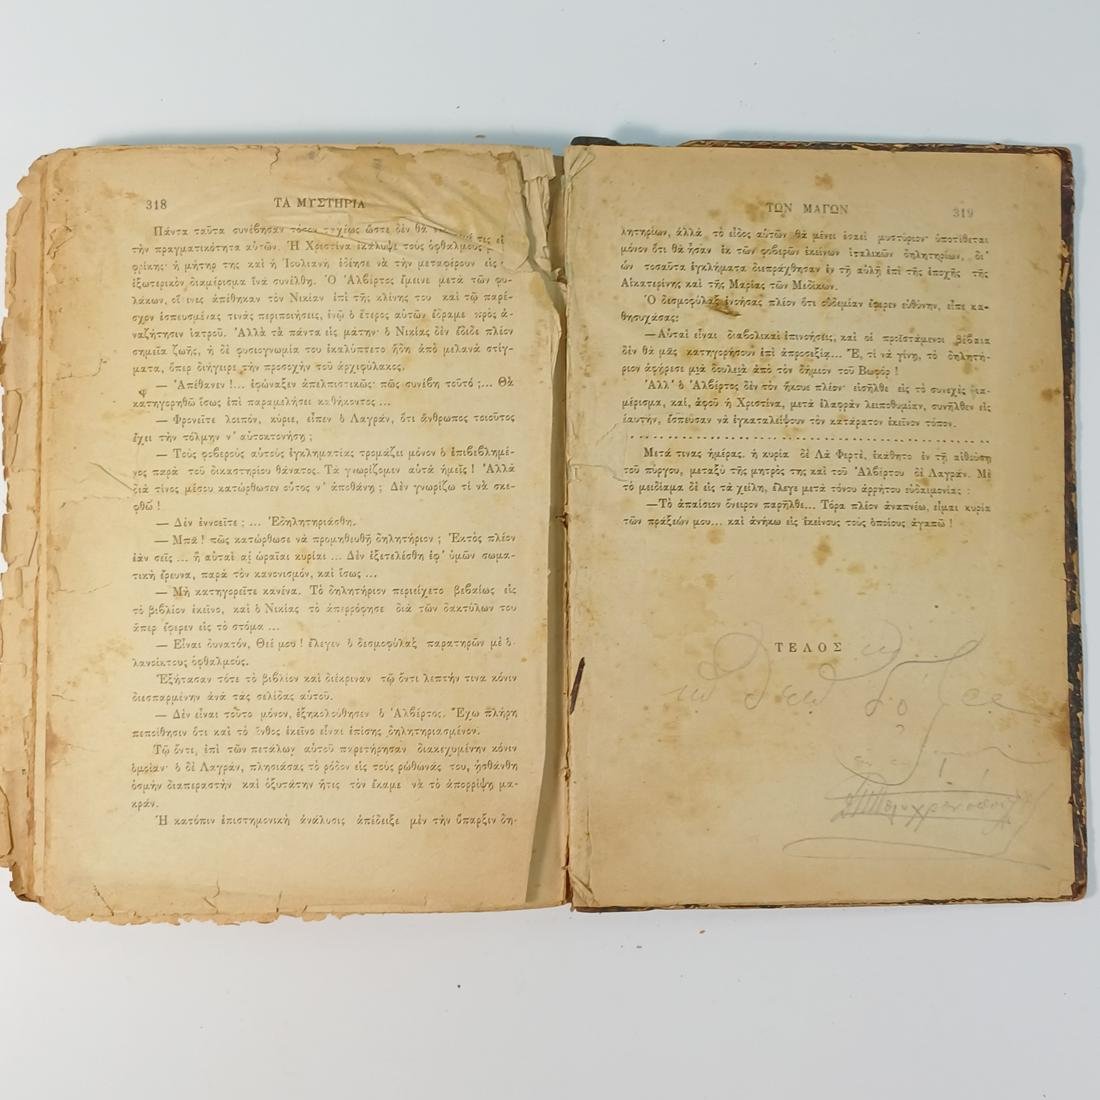 318 ΤΑ ΜΥΣΤΗΡΙΑ
Πάντα ταῦτα συνέβησαν τόσον ταχέως ὥστε δὲν θὰ
τὴν πραγματικότητα αὐτῶν. Ἡ Χριστίνα ἐκάλυψε τοὺς ὀφθαλμοὺς
φρίκης· ἡ μήτηρ της καὶ ἡ Ἰουλιανὴ ἐδέησε νὰ τὴν μεταφέρουν εἰς
ἐξωτερικὸν διαμέρισμα ἵνα συνέλθῃ. Ὁ Ἀλβέρτος ἔμεινε μετὰ τῶν φυ-
λάκων, οἵτινες ἀπέθηκαν τὸν Νικίαν ἐπὶ τῆς κλίνης του καὶ τῷ παρέ-
σχον ἐσπευσμένας τινὰς περιποιήσεις, ἐνῷ ὁ ἕτερος αὐτῶν ἔδραμε πρὸς ἀ-
ναζήτησιν ἰατροῦ. Ἀλλὰ τὰ πάντα εἰς μάτην· ὁ Νικίας δὲν ἔδιδε πλέον
σημεῖα ζωῆς, ἡ δὲ φυσιογνωμία του ἐκαλύπτετο ἤδη ἀπὸ μελανὰ στίγ-
ματα, ὅπερ διήγειρε τὴν προσοχὴν τοῦ ἀρχιφύλακος.
— Ἀπέθανεν!... ἐφώναξεν ἀπελπιστικῶς· πῶς συνέβη τοῦτό;... Θὰ
κατηγορηθῶ ἴσως ἐπὶ παραμελήσει καθήκοντος...
— Φρονεῖτε λοιπόν, κύριε, εἶπεν ὁ Λαγράν, ὅτι ἄνθρωπος τοιοῦτος
ἔχει τὴν τόλμην ν' αὐτοκτονήσῃ;
— Τοὺς φοβεροὺς αὐτοὺς ἐγκληματίας τρομάζει μόνον ὁ ἐπιβεβλημέ-
νος παρὰ τοῦ δικαστηρίου θάνατος. Τὰ γνωρίζομεν αὐτὰ ἡμεῖς! Ἀλλὰ
διὰ τίνος μέσου κατώρθωσεν οὗτος ν' ἀποθάνῃ; Δὲν γνωρίζω τί νὰ σκε-
φθῶ!
— Δὲν ἐννοεῖτε;... Ἐδηλητηριάσθη.
— Μπᾶ! πῶς κατώρθωσε νὰ προμηθευθῇ δηλητήριον; Ἐκτὸς πλέον
ἐὰν σεῖς... ἢ αὐταὶ αἱ ὡραῖαι κυρίαι... Δὲν ἐξετελέσθη ἐφ' ὑμῶν σωμα-
τικὴ ἔρευνα, παρὰ τὸν κανονισμόν, καὶ ἴσως...
— Μὴ κατηγορεῖτε κανένα. Τὸ δηλητήριον περιείχετο βεβαίως εἰς
τὸ βιβλίον ἐκεῖνο, καὶ ὁ Νικίας τὸ ἀπερρόφησε διὰ τῶν δακτύλων του
ἅπερ ἔφερεν εἰς τὸ στόμα...
— Εἶναι δυνατόν, Θεέ μου! ἔλεγεν ὁ δεσμοφύλαξ παρατηρῶν μὲ ὁ-
λανοίκτους ὀφθαλμούς.
Ἐξήτασαν τότε τὸ βιβλίον καὶ διέκριναν τῷ ὄντι λεπτήν τινα κόνιν
διεσπαρμένην ἀνὰ τὰς σελίδας αὐτοῦ.
— Δὲν εἶναι τοῦτο μόνον, ἐξηκολούθησεν ὁ Ἀλβέρτος. Ἔχω πλήρη
πεποίθησιν ὅτι καὶ τὸ ἄνθος ἐκεῖνο εἶναι ἐπίσης δηλητηριασμένον.
Τῷ ὄντι, ἐπὶ τῶν πετάλων αὐτοῦ παρετήρησαν διακεχυμένην κόνιν
ὁμοίαν· ὁ δὲ Λαγράν, πλησιάσας τὸ ρόδον εἰς τοὺς ρώθωνάς του, ᾐσθάνθη
ὀσμὴν διαπεραστὴν καὶ ὀξυτάτην ἥτις τὸν ἔκαμε νὰ τὸ ἀπορρίψῃ μα-
κράν.
Ἡ κατόπιν ἐπιστημονικὴ ἀνάλυσις ἀπέδειξε μὲν τὴν ὕπαρξιν δη-
ΤΩΝ ΜΑΓΩΝ 319
λητηρίων, ἀλλὰ τὸ εἶδος αὐτῶν θὰ μένει ἐσαεὶ μυστήριον· ὑποτίθεται
μόνον ὅτι θὰ ἦσαν ἐκ τῶν φοβερῶν ἐκείνων ἰταλικῶν δηλητηρίων, δι'
ὧν τοσαῦτα ἐγκλήματα διεπράχθησαν ἐν τῇ αὐλῇ ἐπὶ τῆς ἐποχῆς τῆς
Αἰκατερίνης καὶ τῆς Μαρίας τῶν Μεδίκων.
Ὁ δεσμοφύλαξ ἐνοήσας πλέον ὅτι οὐδεμίαν ἔφερεν εὐθύνην, εἶπε κα-
θησυχάσας:
—Αὐταὶ εἶναι διαβολικαὶ ἐπινοήσεις, καὶ οἱ προϊστάμενοι βέβαια
δὲν θὰ μᾶς κατηγορήσουν ἐπὶ ἀπροσεξίᾳ... Ἔ, τί νὰ γίνῃ, τὸ δηλητή-
ριον ἀφήρεσε μιὰ δουλειὰ ἀπὸ τὸν δήμιον τοῦ Βωφόρ!
Ἀλλ' ὁ Ἀλβέρτος δὲν τὸν ἤκουε πλέον· εἰσῆλθε εἰς τὸ συνεχὲς δια-
μέρισμα, καί, ἀφοῦ ἡ Χριστίνα, μετὰ ἐλαφρὰν λειποθυμίαν, συνῆλθεν εἰς
ἑαυτήν, ἔσπευσαν νὰ ἐγκαταλείψουν τὸν κατάρατον ἐκεῖνον τόπον.
Μετά τινας ἡμέρας, ἡ κυρία δὲ Λὰ Φερτέ, ἐκάθητο ἐν τῇ αἰθούσῃ
τοῦ πύργου, μεταξὺ τῆς μητρός της καὶ τοῦ Ἀλβέρτου δὲ Λαγράν. Μὲ
τὸ μειδίαμα δὲ εἰς τὰ χείλη, ἔλεγε μετὰ τόνου ἀρρήτου εὐδαιμονίας:
—Τὸ ἀπαίσιον ὄνειρον παρῆλθε... Τόρα πλέον ἀναπνέω, εἶμαι κυρία
τῶν πράξεών μου... καὶ ἀνήκω εἰς ἐκείνους τοὺς ὁποίους ἀγαπῶ!
ΤΕΛΟΣ